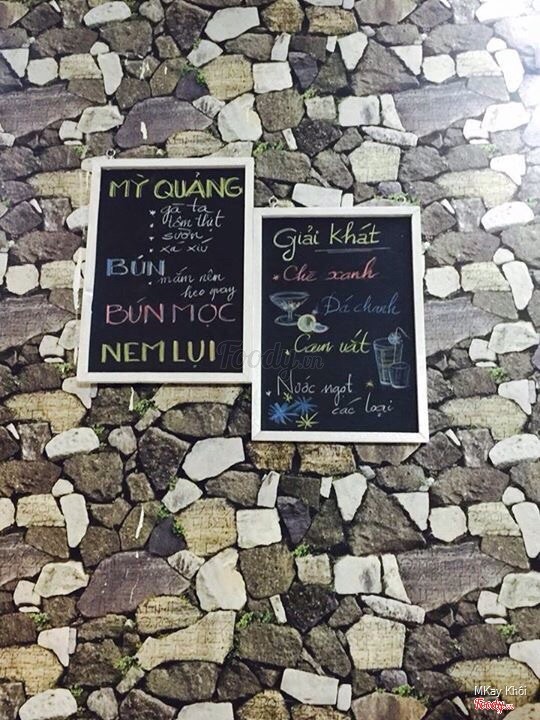 MỲ QUẢNG
* gà ta
* tôm thịt
* sườn
* xá xíu
BÚN
* mắm nêm
heo quay
BÚN MỌC
NEM LỤI
Giải khát
* Chè xanh
* Đá chanh
* Cam vắt
* Nước ngọt
các loại
Foody.vn
MKay Khôi
Foody.vn